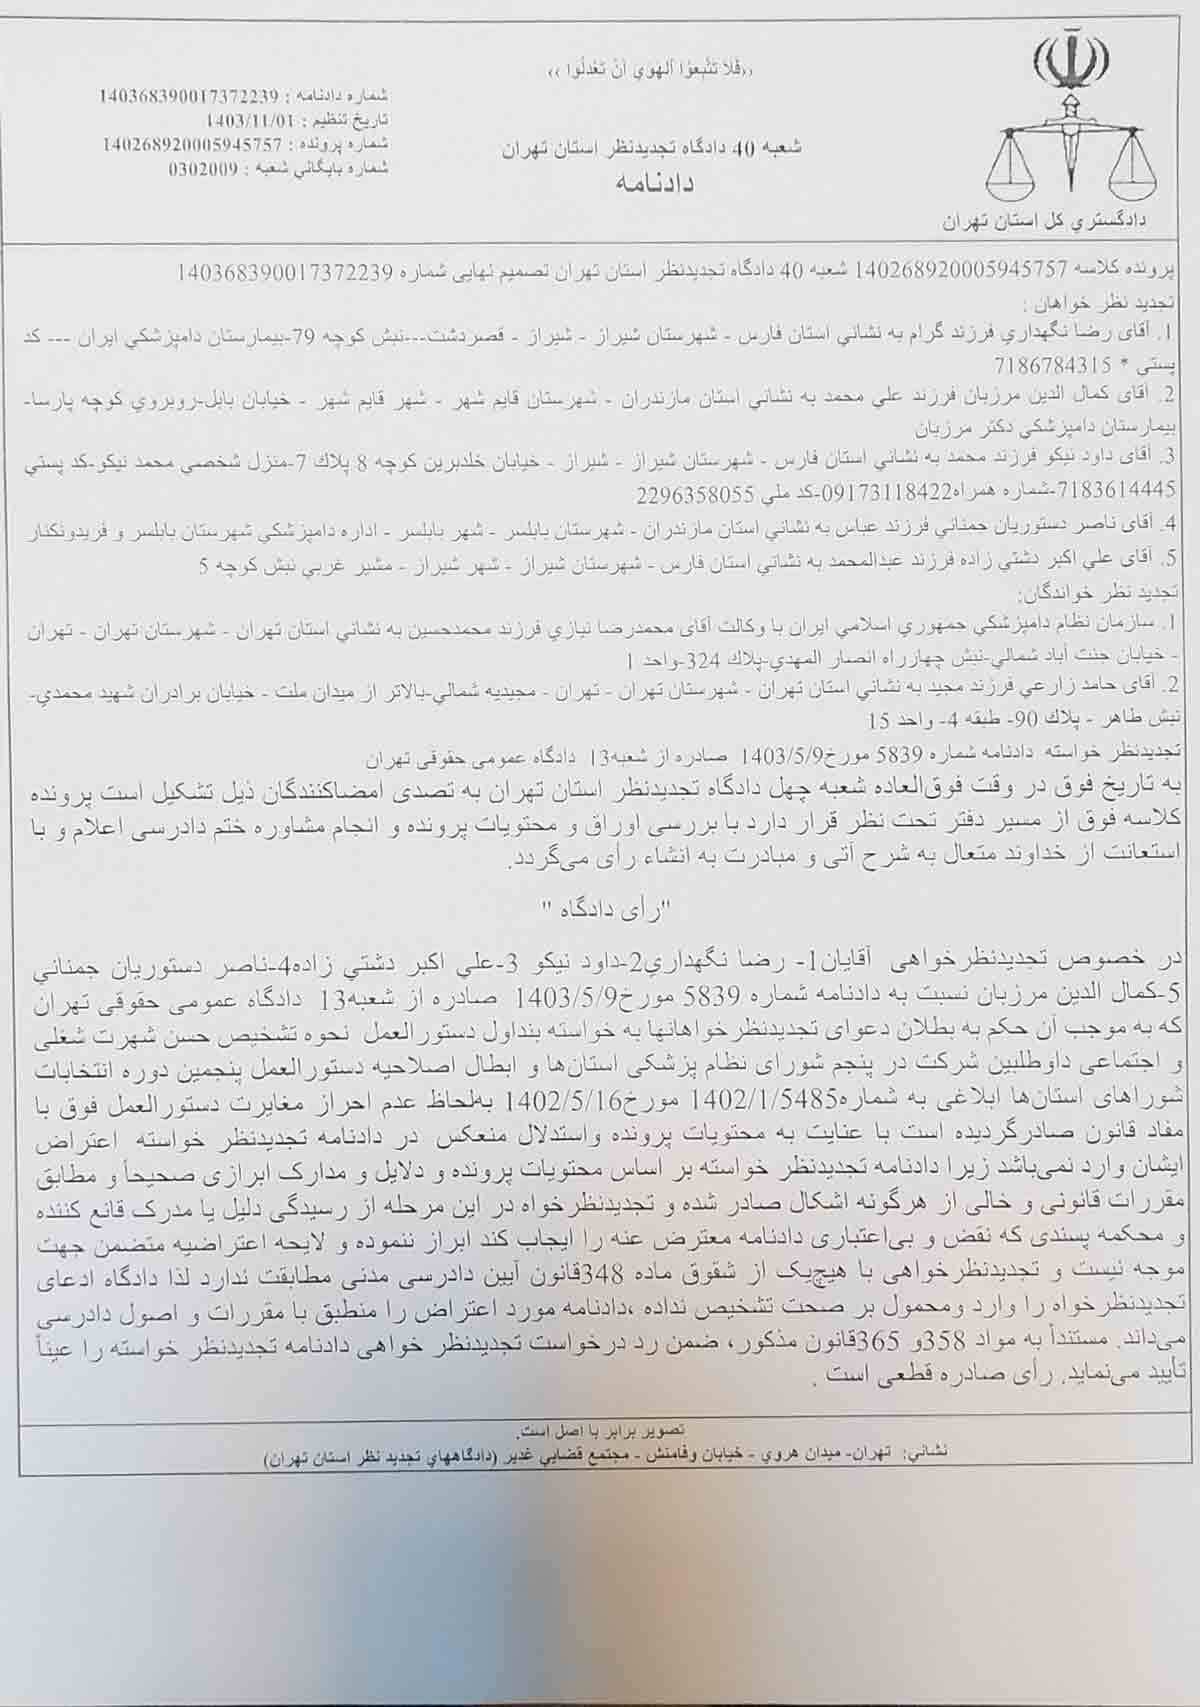 ‹‹فَلا تَتَّبِعُوا اَلْهَوي أَنْ تَعْدِلُوا ››
شماره دادنامه : 140368390017372239
تاریخ تنظیم : 1403/11/01
شماره پرونده : 140268920005945757
شماره بایگاني شعبه : 0302009
شعبه 40 دادگاه تجدیدنظر استان تهران
دادنامه
دادگستري کل استان تهران
پرونده کلاسه 140268920005945757 شعبه 40 دادگاه تجدیدنظر استان تهران تصمیم نهایی شماره 140368390017372239
تجدید نظر خواهان :
1. آقای رضا نگهداري فرزند گرام به نشاني استان فارس - شهرستان شیراز - شیراز - قصردشت---نبش کوچه 79-بیمارستان دامپزشکي ایران --- کد
پستی * 7186784315
2. آقای کمال الدین مرزبان فرزند علي محمد به نشاني استان مازندران - شهرستان قایم شهر - شهر قایم شهر - خیابان بابل-روبروي کوچه پارسا-
بیمارستان دامپزشکي دکتر مرزبان
3. آقای داود نیکو فرزند محمد به نشاني استان فارس - شهرستان شیراز - شیراز - خیابان خلدبرین کوچه 8 پلاك 7-منزل شخصي محمد نیکو-کد پستي
7183614445-شماره همراه09173118422-کد ملي 2296358055
4. آقای ناصر دستوریان جمناني فرزند عباس به نشاني استان مازندران - شهرستان بابلسر - شهر بابلسر - اداره دامپزشکي شهرستان بابلسر و فریدونکنار
5. آقای علي اکبر دشتي زاده فرزند عبدالمحمد به نشاني استان فارس - شهرستان شیراز - شهر شیراز - مشیر غربي نبش کوچه 5
تجدید نظر خواندگان:
1. سازمان نظام دامپزشکي جمهوري اسلامي ایران با وکالت آقای محمدرضا نیازي فرزند محمدحسین به نشاني استان تهران - شهرستان تهران - تهران
- خیابان جنت آباد شمالي-نبش چهارراه انصار المهدي-پلاك 324-واحد 1
2. آقای حامد زارعي فرزند مجید به نشاني استان تهران - شهرستان تهران - تهران - مجیدیه شمالي-بالاتر از میدان ملت - خیابان برادران شهید محمدي-
نبش طاهر - پلاك 90- طبقه 4- واحد 15
تجدیدنظر خواسته دادنامه شماره 5839 مورخ1403/5/9 صادره از شعبه13 دادگاه عمومی حقوقی تهران
به تاریخ فوق در وقت فوق‌العاده شعبه چهل دادگاه تجدیدنظر استان تهران به تصدی امضاکنندگان ذیل تشکیل است پرونده
کلاسه فوق از مسیر دفتر تحت نظر قرار دارد با بررسی اوراق و محتویات پرونده و انجام مشاوره ختم دادرسی اعلام و با
استعانت از خداوند متعال به شرح آتی و مبادرت به انشاء رأی می‌گردد.
"رأی دادگاه "
در خصوص تجدیدنظرخواهی آقایان1- رضا نگهداري2-داود نیکو 3-علي اکبر دشتي زاده4-ناصر دستوریان جمناني
5-کمال الدین مرزبان نسبت به دادنامه شماره 5839 مورخ1403/5/9 صادره از شعبه13 دادگاه عمومی حقوقی تهران
که به موجب آن حکم به بطلان دعوای تجدیدنظرخواهانها به خواسته بنداول دستورالعمل نحوه تشخیص حسن شهرت شغلی
و اجتماعی داوطلبین شرکت در پنجم شورای نظام پزشکی استان‌ها و ابطال اصلاحیه دستورالعمل پنجمین دوره انتخابات
شوراهای استان‌ها ابلاغی به شماره1402/1/5485 مورخ1402/5/16 به‌لحاظ عدم احراز مغایرت دستورالعمل فوق با
مفاد قانون صادرگردیده است با عنایت به محتویات پرونده واستدلال منعکس در دادنامه تجدیدنظر خواسته اعتراض
ایشان وارد نمی‌باشد زیرا دادنامه تجدیدنظر خواسته بر اساس محتویات پرونده و دلایل و مدارک ابرازی صحیحاً و مطابق
مقررات قانونی و خالی از هرگونه اشکال صادر شده و تجدیدنظرخواه در این مرحله از رسیدگی دلیل یا مدرک قانع کننده
و محکمه پسندی که نقض و بی‌اعتباری دادنامه معترض عنه را ایجاب کند ابراز ننموده و لایحه اعتراضیه متضمن جهت
موجه نیست و تجدیدنظرخواهی با هیچ‌یک از شقوق ماده 348قانون آیین دادرسی مدنی مطابقت ندارد لذا دادگاه ادعای
تجدیدنظرخواه را وارد ومحمول بر صحت تشخیص نداده ،دادنامه مورد اعتراض را منطبق با مقررات و اصول دادرسی
می‌داند. مستنداً به مواد 358و 365قانون مذکور، ضمن رد درخواست تجدیدنظر خواهی دادنامه تجدیدنظر خواسته را عیناً
تأیید می‌نماید. رأی صادره قطعی است .
تصویر برابر با اصل است.
نشاني: تهران- میدان هروي - خیابان وفامنش - مجتمع قضایي غدیر (دادگاههاي تجدید نظر استان تهران)